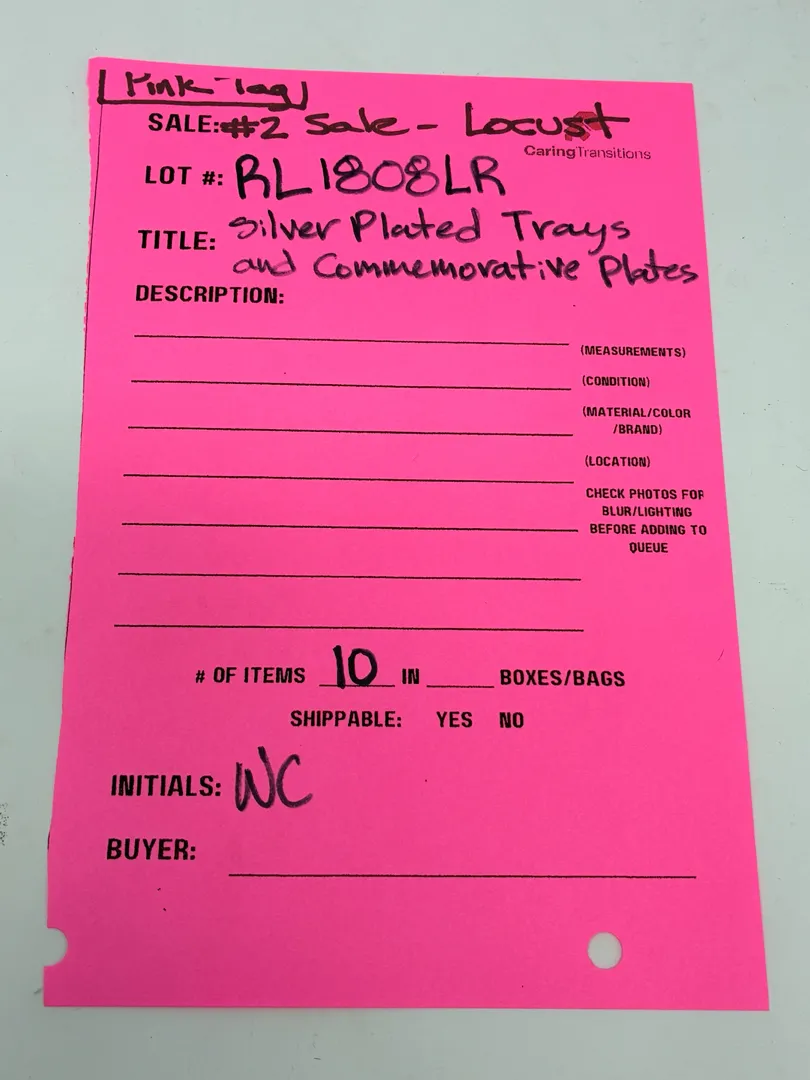 Pink-Tag
SALE: #2 Sale - Locust
CaringTransitions
LOT #: RL1808LR
TITLE: Silver Plated Trays
and Commemorative Plates
DESCRIPTION:
(MEASUREMENTS)
(CONDITION)
(MATERIAL/COLOR
/BRAND)
(LOCATION)
CHECK PHOTOS FOR
BLUR/LIGHTING
BEFORE ADDING TO
QUEUE
# OF ITEMS 10 IN ______ BOXES/BAGS
SHIPPABLE: YES NO
INITIALS: WC
BUYER: